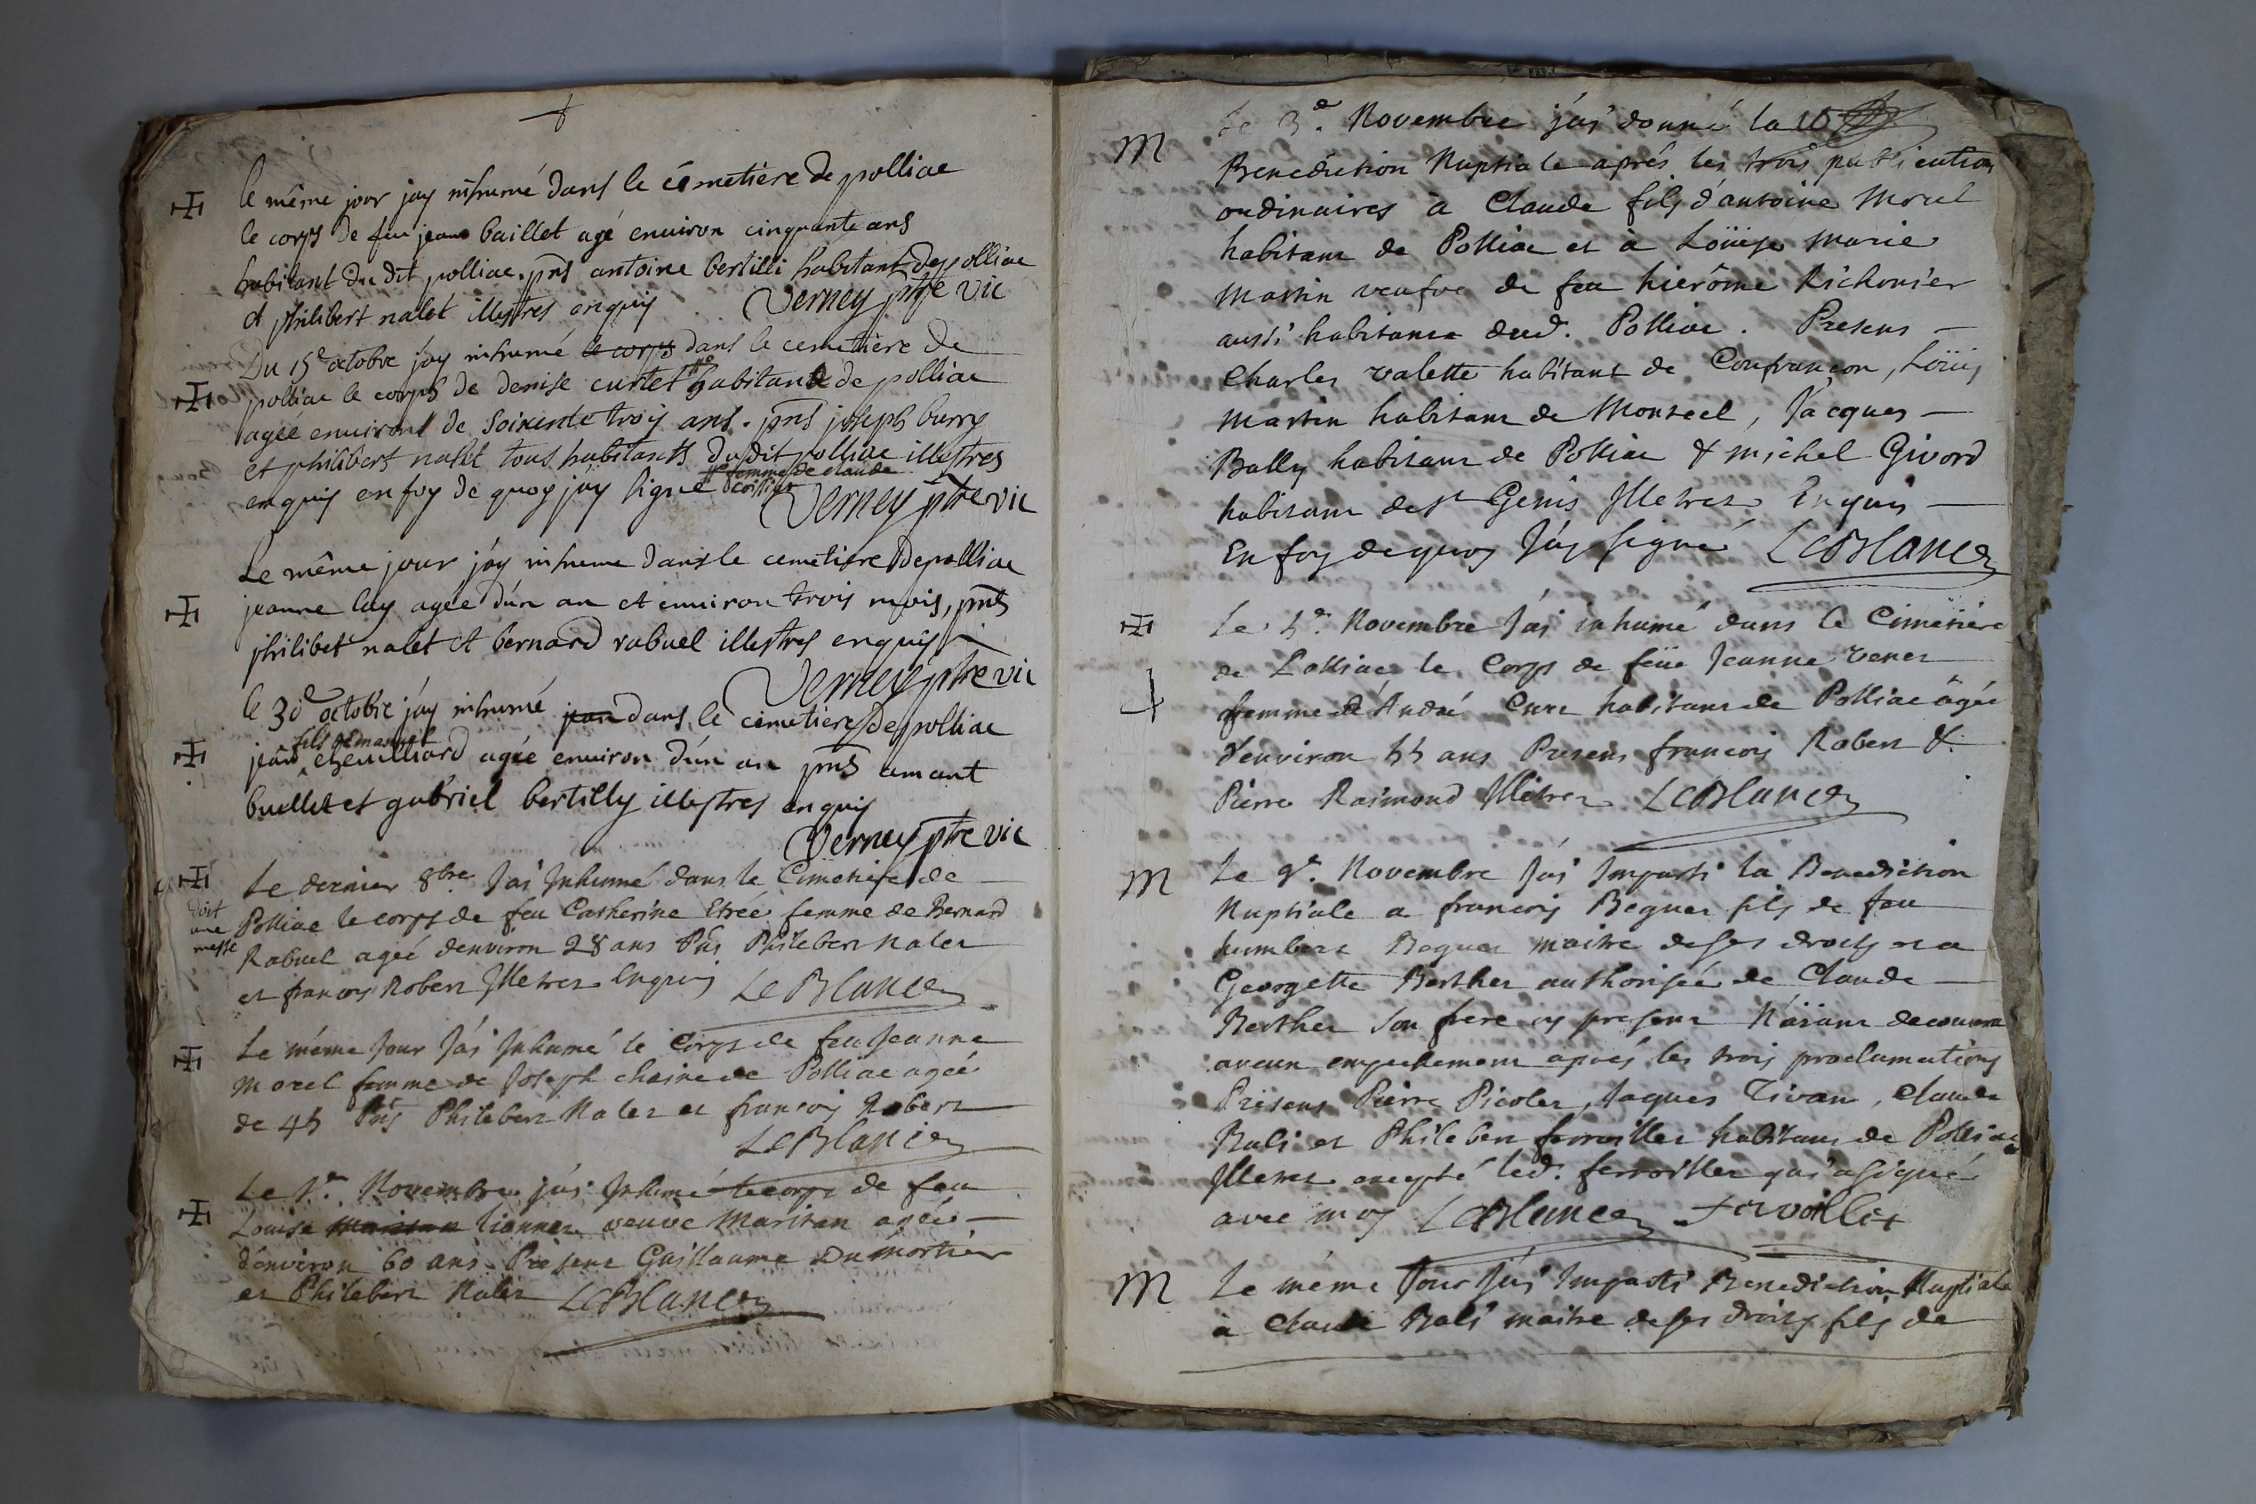 le même jour jay inhumé dans le cémetiere de polliac
le corps de feu jean baillet agé environ cinquante ans
habitant du dit polliac. pns antoine bertilli habitant de polliac
et philibert nalet illestres enquis Verney ptre vic
Du 15e octobre jay inhumé le corps dans le cemetiere de
polliac le corps de denise curtet habitante de polliac
agée environt de soixente trois ans. pns joseph burry
et philibert nalet tous habitants du dit polliac illestres
femme de claude
enquis en foy de quoy jay signé Verney ptre vic
Le même jour jay inhumé dans le cemetiere de polliac
jeanne lay agée d'un an et environ trois mois, pnts
philibet nalet et bernard rabuel illestres enquis
Verney ptre vic
le 30e octobre jay inhumé jean dans le cimetiere de polliac
fils d'Emanuel
jean chevilliard agée environ d'un an pns amant
buellet et gabriel bertilly illestres enquis
Verney ptre vic
Le dernier 8bre J'ai Inhumé dans le Cimetiere de
doit une messe
Polliac le corps de feu Catherine Etrée femme de Bernard
Rabuel agée denviron 28 ans Pns Philebert Nalet
et francois Robert Illetrez Enquis LeBlanc
Le même Jour J'ai Inhumé le Corps de feu Jeanne
Morel femme de Joseph chaine de Polliac agée
de 45 Pns Philebert Nalet et francois Robert
LeBlanc
Le 1er. Novembre j'ai Inhumé le corps de feu
Louise veuve Maritan agée
d'environ 60 ans Present Guillaume Dumortier
et Philebert Nalet LeBlanc
M
Le 3e. Novembre j'ai donné la
Benediction Nuptiale aprés les trois publication
ordinaires à Claude fils d'antoine Morel
habitant de Polliac et à Loüise Marie
Martin veufve de feu hierôme Richonier
aussi habitante dud. Polliac. Presens
Charles valette habitant de Confrançon, Loüis
Martin habitant de Montcel, Jacques
Bally habitant de Polliac & michel Givord
habitant de St Genis Illetrez Enquis
En foy de quoy J'ay signé LeBlanc
Le Novembre J'ai inhumé dans le Cimetiére
de Polliac le Corps de feüe Jeanne
femme d'André habitant de Polliac âgée
d'environ ans Presens francois Robert &
Pierre Raimond Illetrez LeBlanc
M
Le 9e. Novembre J'ai Imparti la Benediction
Nuptiale a francois Beguet fils de feu
humbert Beguet maitre de ses droits et a
Georgette Berthet authorisée de Claude
Berthet son frere cy present N'aiant decouvert
aucun empechement aprés les trois proclamations
Presens Pierre Picolet, Jaques Tivan, Claude
Bali et Philebert ferroillet habitans de Polliac
Illetrez excepté led. ferroillet qui a signé
avec moy LeBlanc ferroillet
M
Le méme Jour J'ai Imparti Benediction Nuptiale
à Claude Bali maitre de ses droits fils de